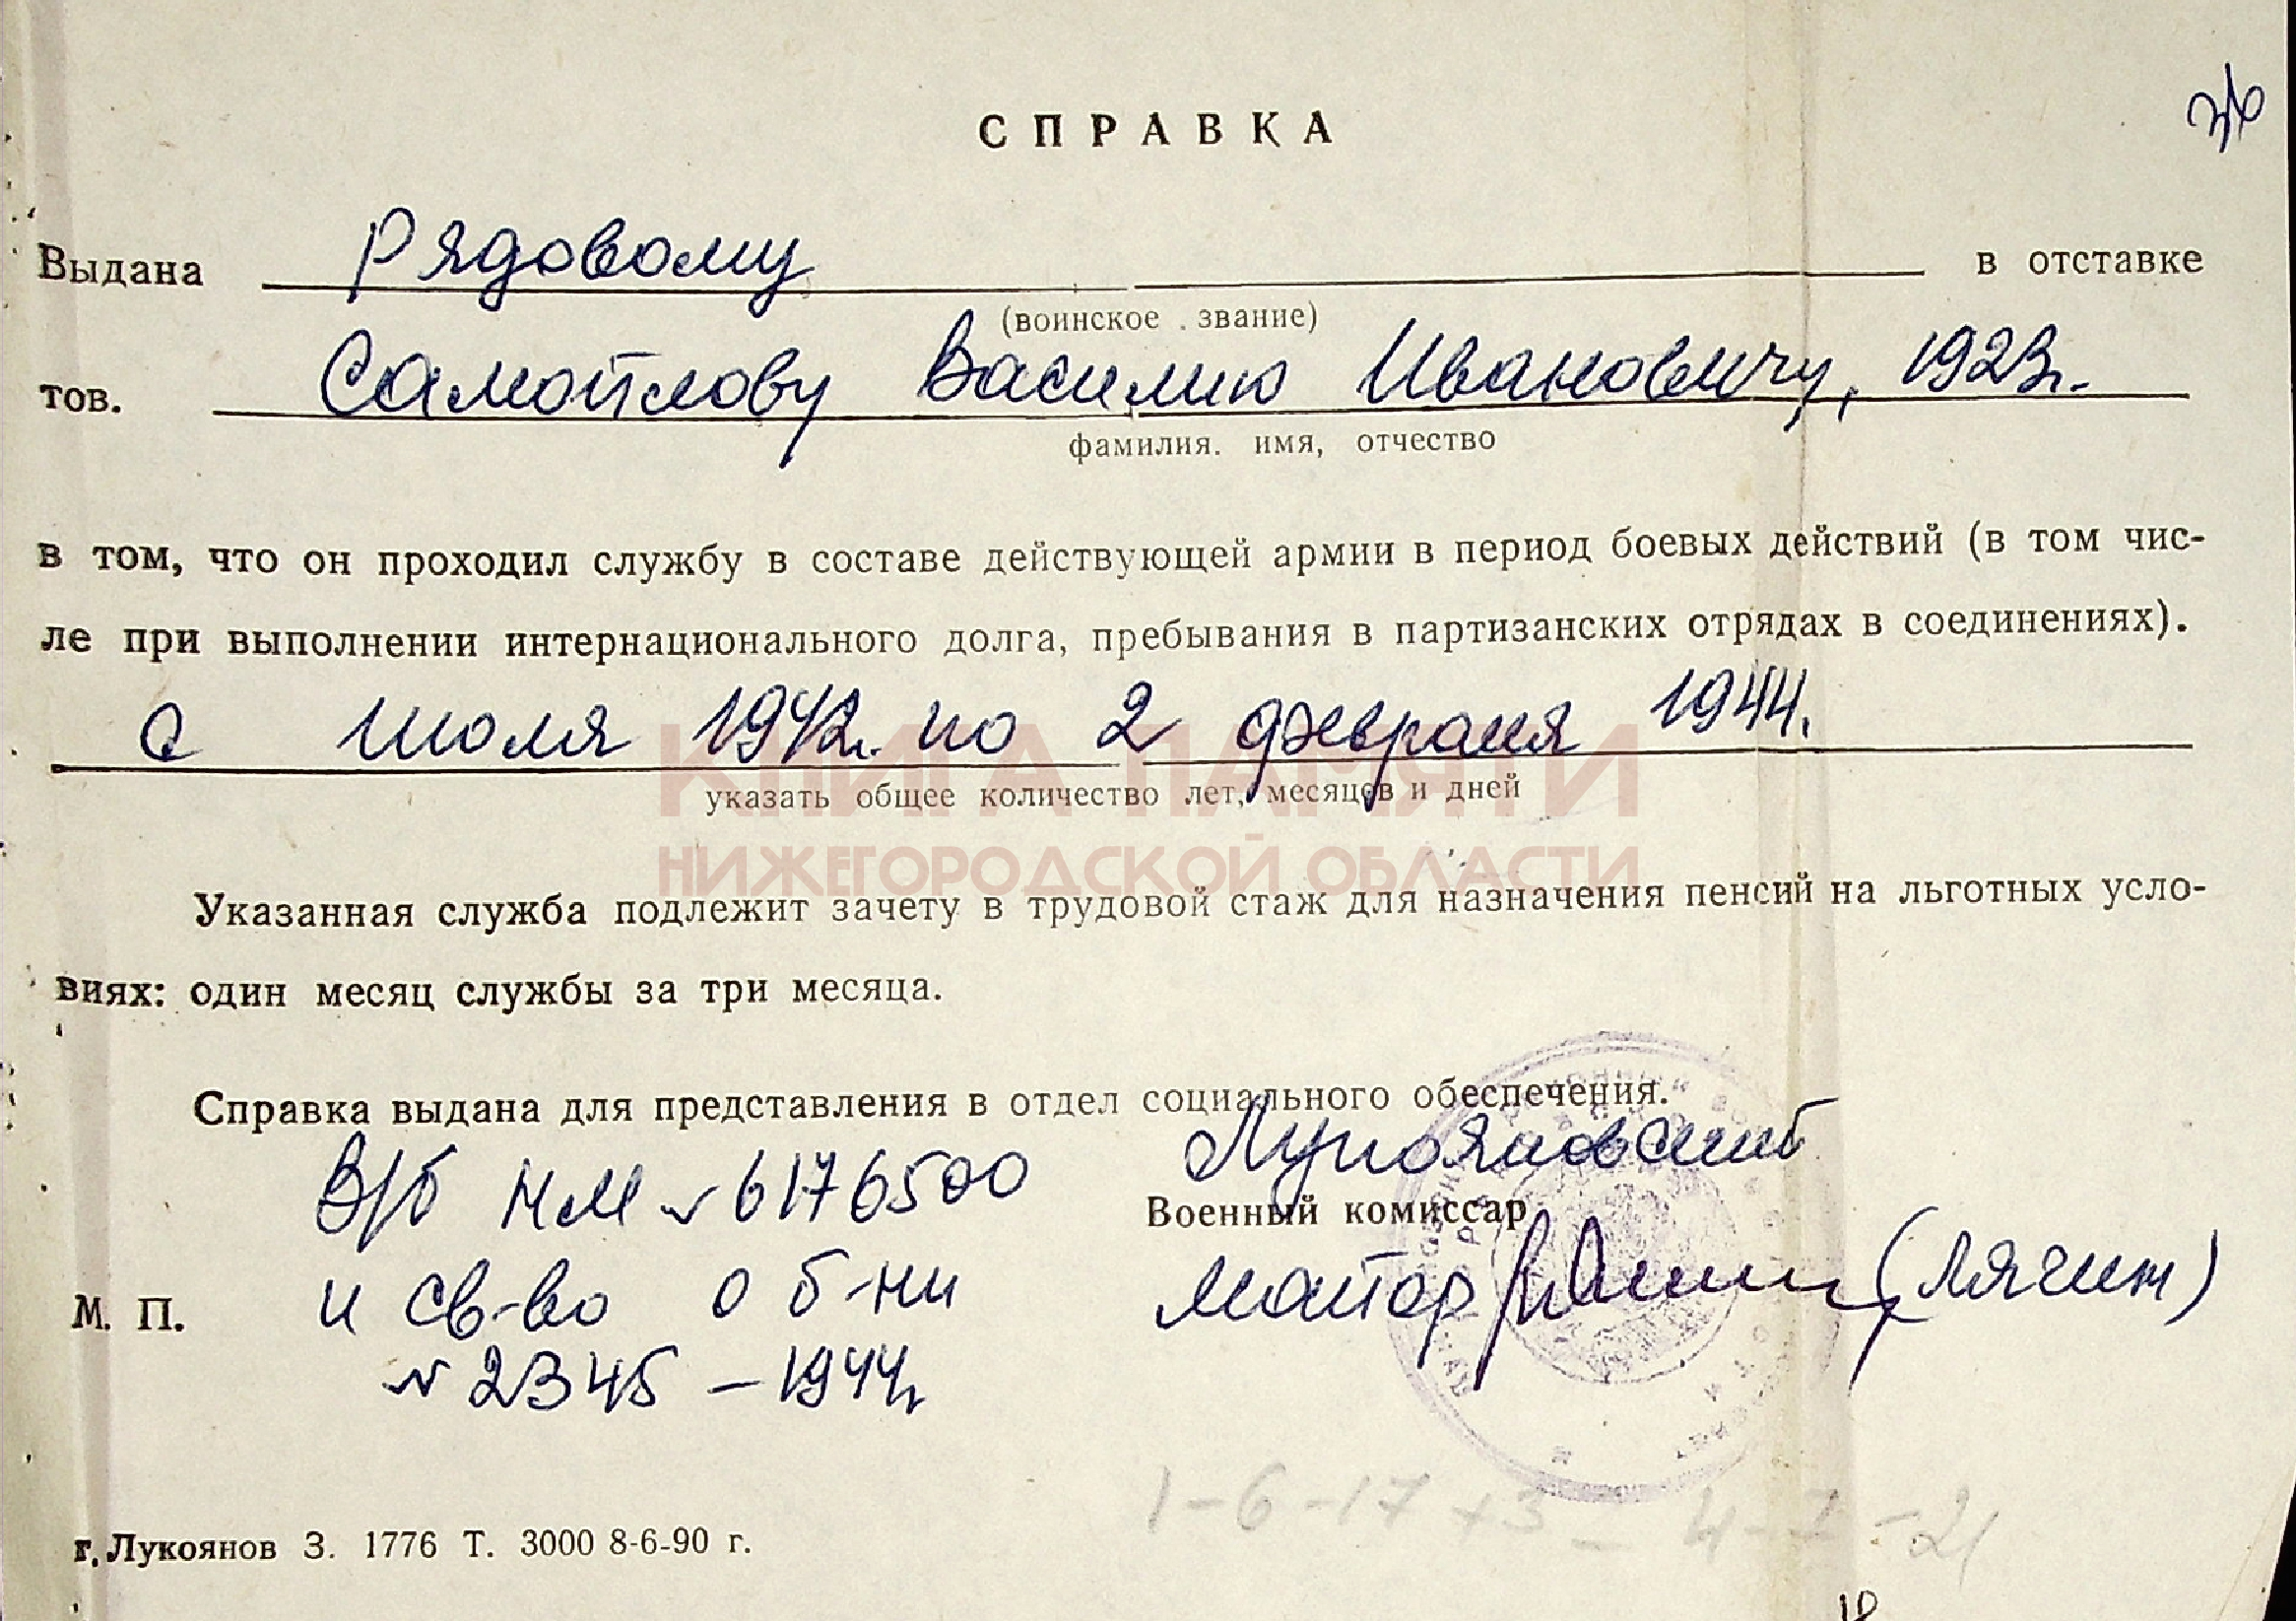 36
СПРАВКА
Выдана Рядовому в отставке
(воинское звание)
тов. Самойлову Василию Ивановичу, 1923г.
фамилия. имя, отчество
в том, что он проходил службу в составе действующей армии в период боевых действий (в том чис-
ле при выполнении интернационального долга, пребывания в партизанских отрядах в соединениях).
с июля 1942г. по 2 февраля 1944.
КНИГА ПАМЯТИ
указать общее количество лет, месяцев и дней
НИЖЕГОРОДСКОЙ ОБЛАСТИ
Указанная служба подлежит зачету в трудовой стаж для назначения пенсий на льготных усло-
виях: один месяц службы за три месяца.
Справка выдана для представления в отдел социального обеспечения.
В/б НМ № 6176500 Лукояновский
Военный комиссар
М. П. и св-во о б-ни майор (Лячин)
№ 2345 – 1944г
1-6-17 х3 =
г. Лукоянов З. 1776 Т. 3000 8-6-90 г.